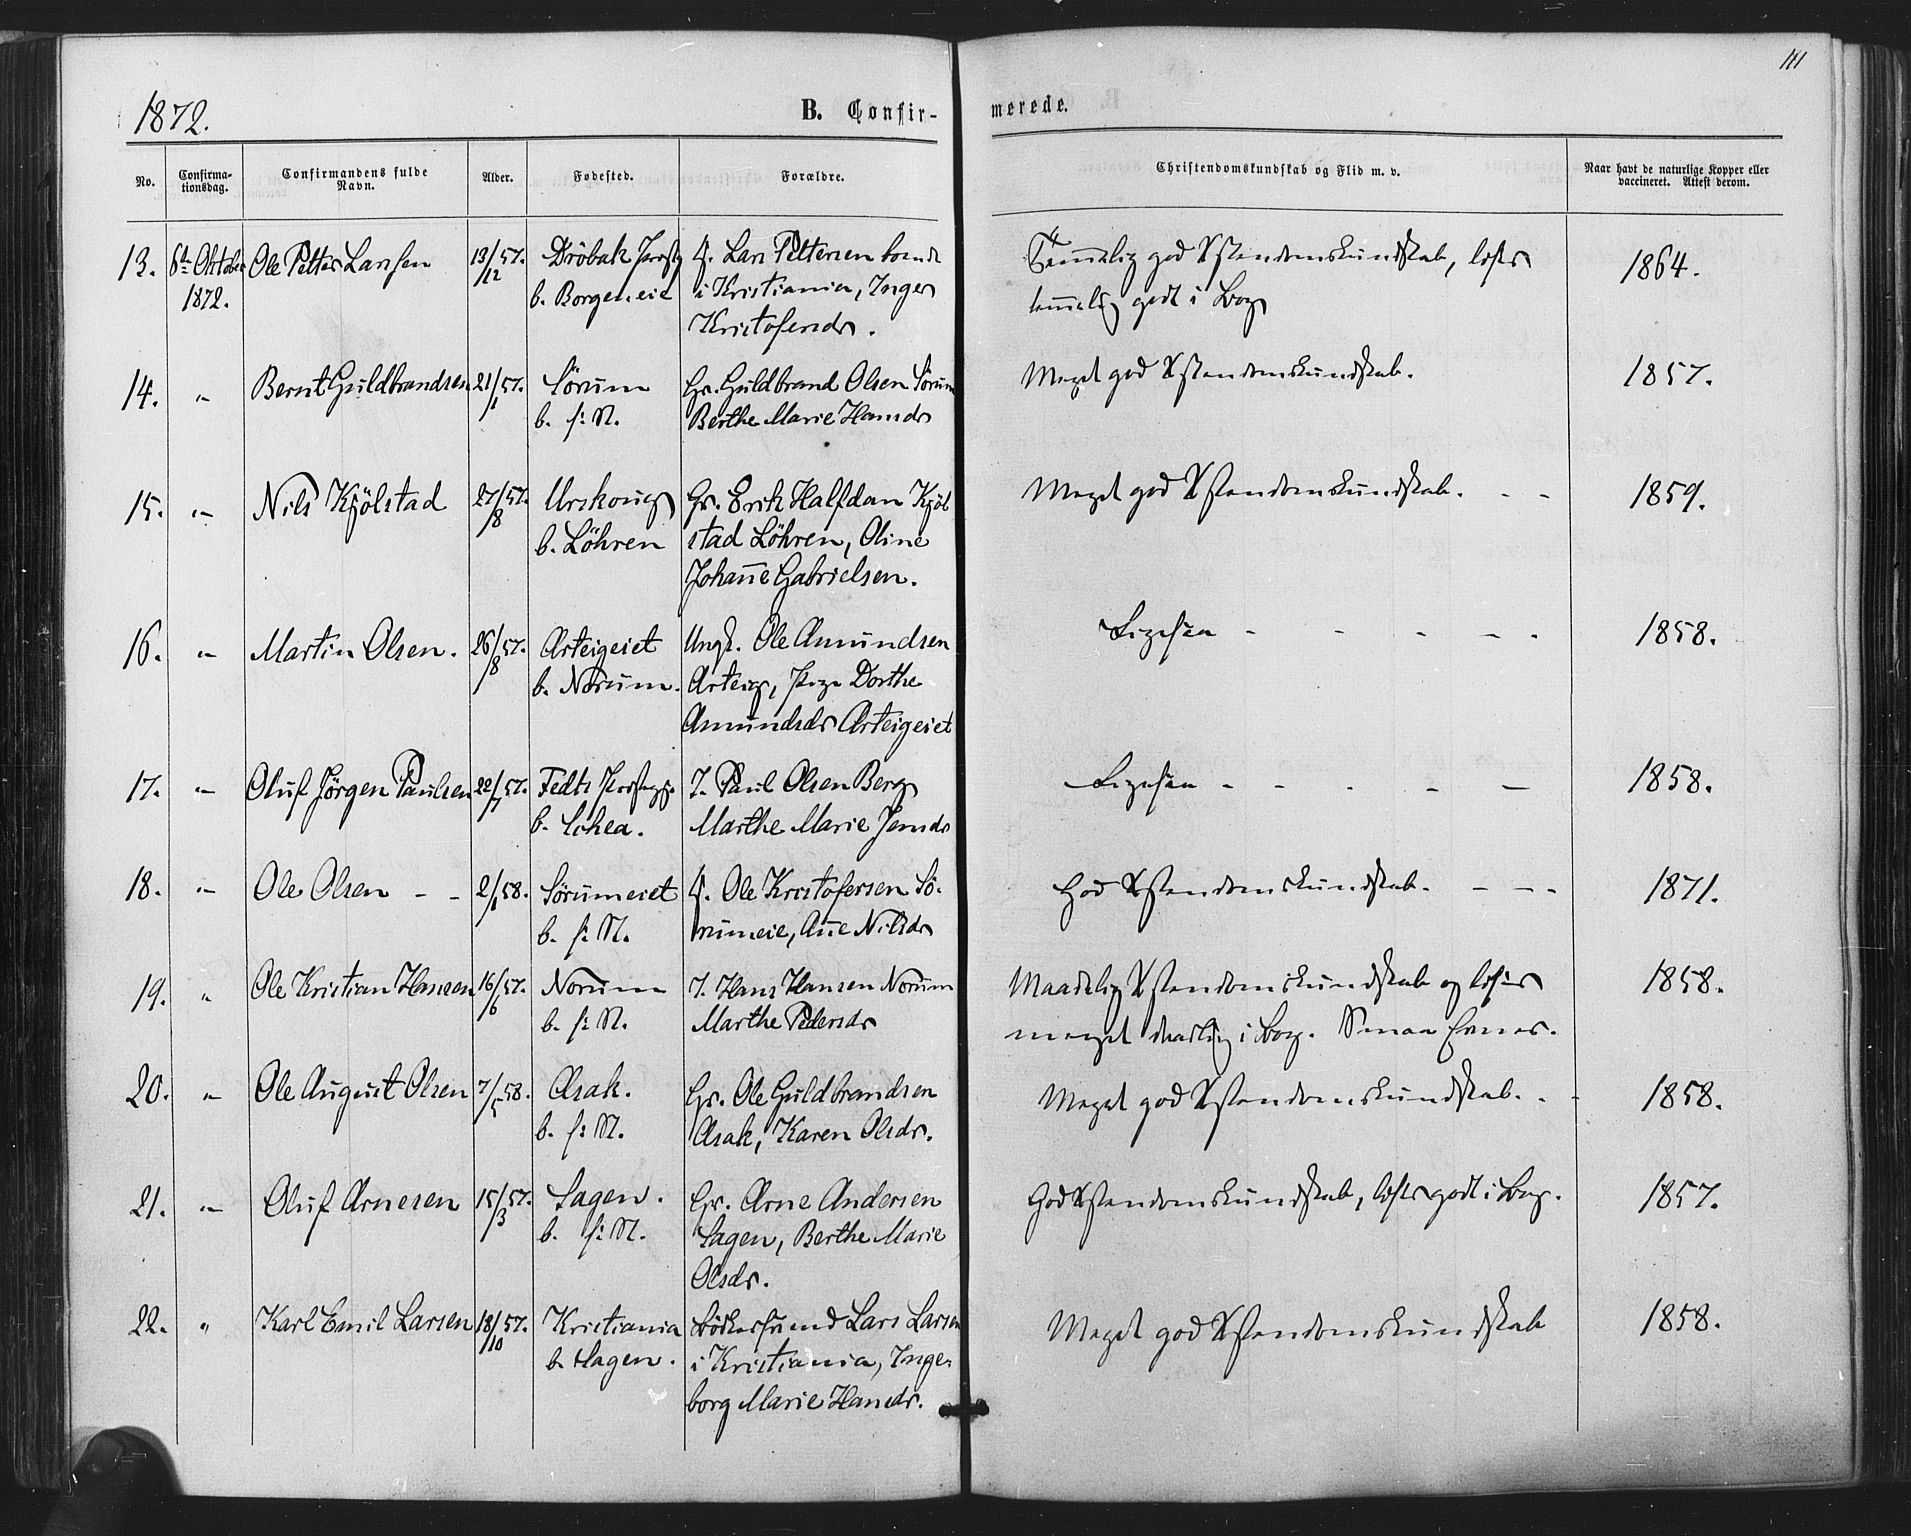 111
1872.
B. Confir-
merede.
No.
Confirma-
tionsdag.
Confirmandens fulde
Navn.
Alder.
Fødested.
Forældre.
Christendomskundskab og Flid m. v.
Naar havt de naturlige Kopper eller
vaccineret. Attest derom.
13. 6te Oktober Ole Petter Larsen 13/12 57. Dröbak b. Borgeneie
1872.
F. Lars Pettersen boende
i Kristiania, Inger
Kristofersdr.
Temmelig god Xstendomskundskab, læser
temmelig godt i Bog
1864.
14. " Bernt Guldbrandsen 21/1 57. Sörum
b. s: St.
Gr. Guldbrand Olsen Sörum
Berthe Marie Hansdr
Meget god Xstendomskundskab.
1857.
15. " Nils Kjölstad 27/8 57. Urskoug
b. Löhren
Gr. Erik Halfdan Kjöl
stad Löhren, Oline
Johanne Gabrielsen.
Meget god Xstendomskundskab. - -
1859.
16. " Martin Olsen. 26/8 57. Arteigeiet
b. Norum.
Ungk. Ole Amundsen
Arteig, Pige Dorthe
Amundsdr Arteigeiet
Ligesaa - - - - -
1858.
17. " Oluf Jörgen Paulsen 22/7 57. Fedts
b.
I. Paul Olsen Berg
Marthe Marie Jensdr
Ligesaa - - - - -
1858.
18. " Ole Olsen - - 2/1 58. Sörumeiet
b. s: St.
F. Ole Kristofersen Sö-
rumeie, Anne Nilsdr
God Xstendomskundskab. - - -
1871.
19. " Ole Kristian Hansen 16/6 57. Norum
b. s: St.
I. Hans Hansen Norum
Marthe Pedersdr
Maadelig Xstendomskundskab og læser
meget daarlig i Bog. Smaa Evner.
1858.
20. " Ole August Olsen 7/5 58. Asak.
b. s: St.
Gr. Ole Guldbrandsen
Asak, Karen Olsdr.
Meget god Xstendomskundskab. - -
1858.
21. " Oluf Arnesen 15/3 57. Sagen.
b. s: St.
Gr. Arne Andersen
Sagen, Berthe Marie
Olsdr.
God Xstendomskundskab, læser godt i Bog.
1857.
22. " Karl Emil Larsen 18/10 57. Kristiania
b. Sagen.
Bödkersvend Lars Larsen
i Kristiania, Inge-
borg Marie Hansdr.
Meget god Xstendomskundskab
1858.